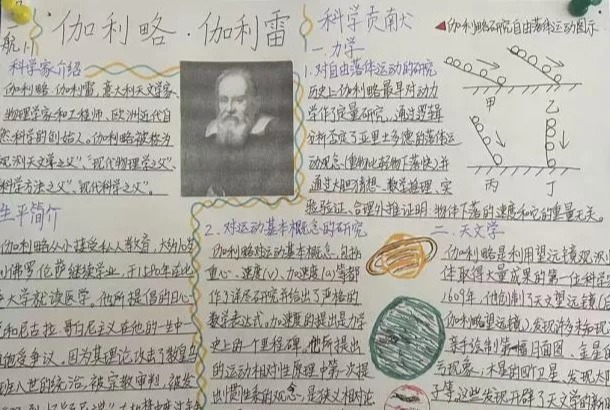 航1.1
伽利略·伽利雷
科学家介绍
伽利略·伽利雷,意大利天文学家、
物理学家和工程师,欧洲近代自
然科学的创始人。伽利略被称为
观测天文学之父"、"现代物理学之父"、
科学方法之父"、"现代科学之父"。
生平简介
伽利略从小接受私人教育,大约
佛罗伦萨继续学业,于
大学就读医学。他所提倡的日心
和尼古拉·哥白尼主义在他的一生中
受争议,因为其理论攻击了教皇
的统治,被宗教审判,被发
科学贡献
一.力学
1.对自由落体运动的研究
历史上伽利略最早对动力
学作了定量研究,通过逻辑
分析否定了亚里士多德的落体运
动观念(重物比轻物下落快),并
通过大胆猜想、数学推理、实
验验证、合理外推证明,物体下落的速度和它的重量无关。
2.对运动基本概念的研究
伽利略对运动基本概念,包括
重心、速度(v)、加速度(a)等都
作了详尽研究并给出了严格的
数学表达式。加速度的提出是力学
史上的一个里程碑。他所提出
的运动相对性原理中第一次提
出惯性系的观念,是狭义相对论
◀伽利略研究自由落体运动图示
甲
乙
丙
丁
二.天文学
伽利略是利用望远镜观测
体取得大量成果的第一位科学
1609年,他创制了天文望远镜(
伽利略望远镜),发现许多
亲手绘制第一幅月面图,金星
亏现象;木星的四卫星,发现太
子等。这些发现开辟了天文学的新